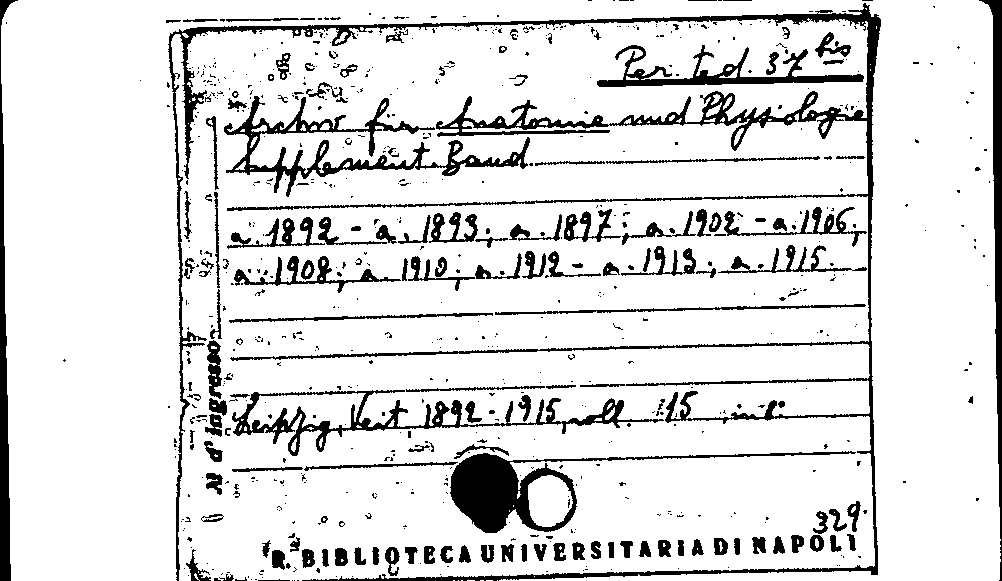 Per. ted. 37 bis
Archiv für Anatomie und Physiologie
Supplement. Band
a. 1892 - a. 1893; a. 1897; a. 1902 - a. 1906;
a. 1908; a. 1910; a. 1912 - a. 1913; a. 1915.
Leipzig, Veit 1892-1915, voll. 15 in 8°
329
R. BIBLIOTECA UNIVERSITARIA DI NAPOLI
N d'ingresso